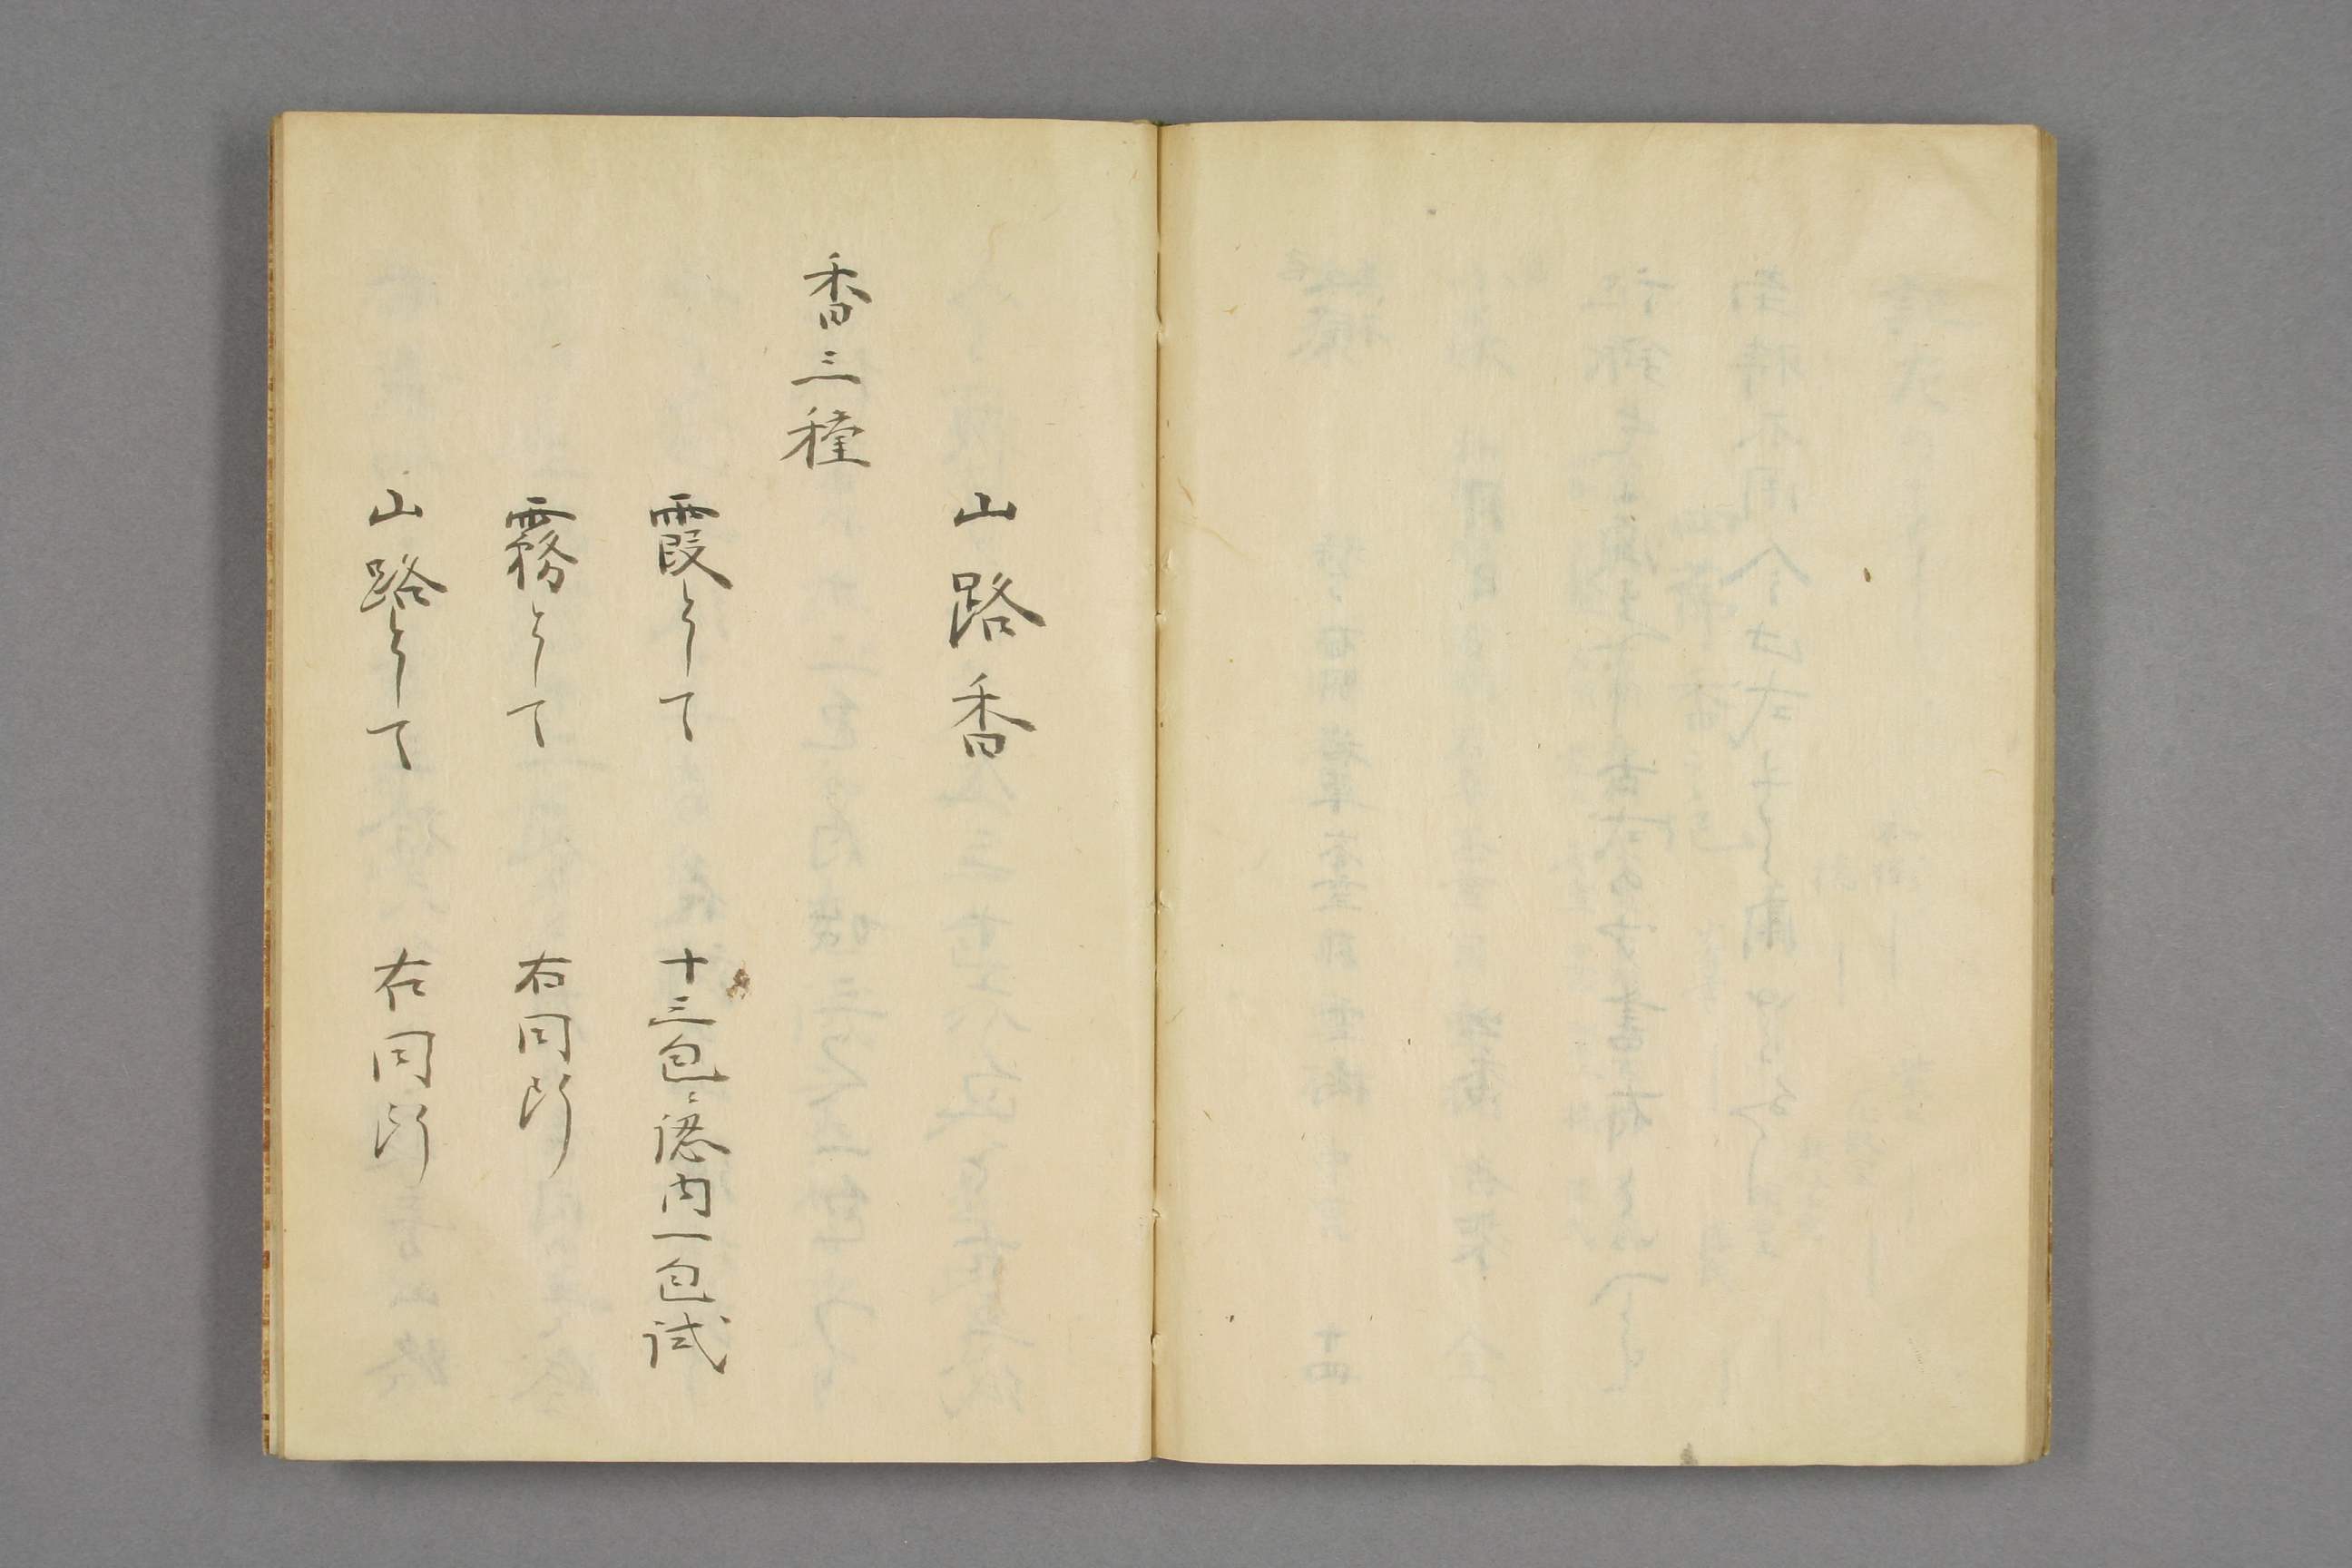 山路香
香三種
霞として 十三包ミ認内一包試
霧として 右同断
山路として 右同断